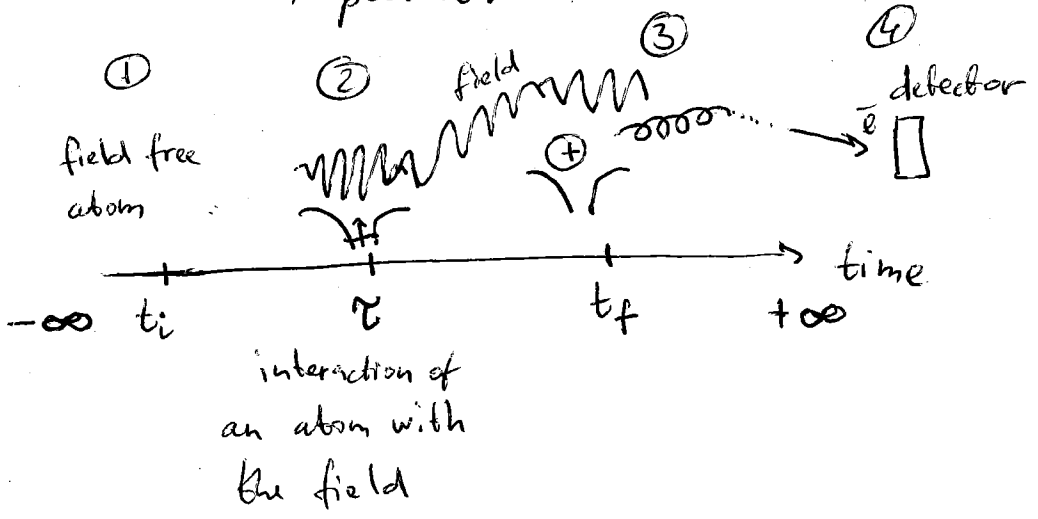 ① ② ③ ④
field
detector
field free
atom
ē
+
time
-∞ tᵢ τ t_f +∞
interaction of
an atom with
the field